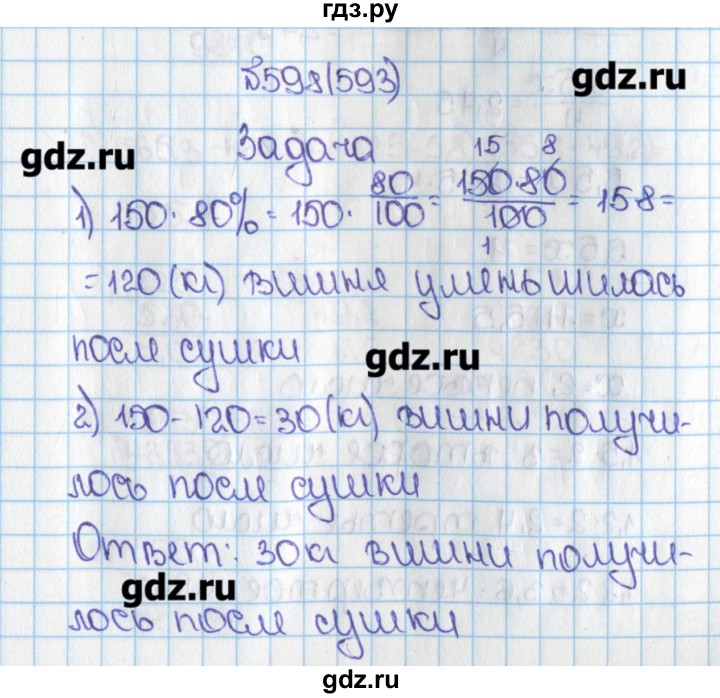 гдз.ру
№598(593)
gdz.ru
gdz.ru
Задача
1) 150 · 80% = 150 · 80/100 = 150·80/100 = 15·8 =
15 8
1
= 120 (кг) вишня уменьшилась
после сушки
gdz.ru
2) 150 - 120 = 30 (кг) вишни получи-
лось после сушки
Ответ: 30 кг вишни получи-
gdz.ru
лось после сушки
gdz.ru